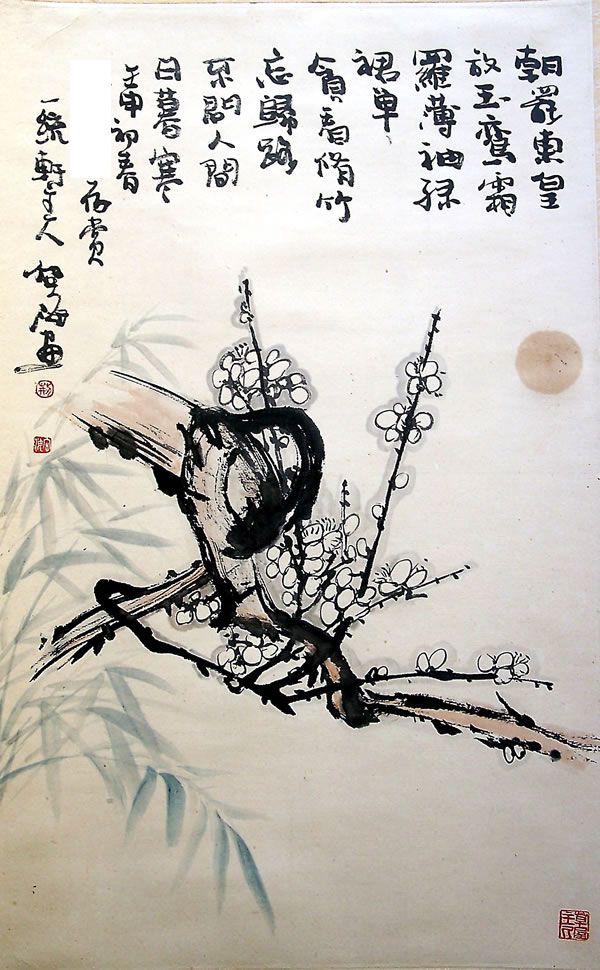 朝罷東皇
放玉鸞霜
羅薄袖綠
裙单
貪看脩竹
忘歸路
不問人間
日暮寒
壬申初春
存賞
軒主人 畫